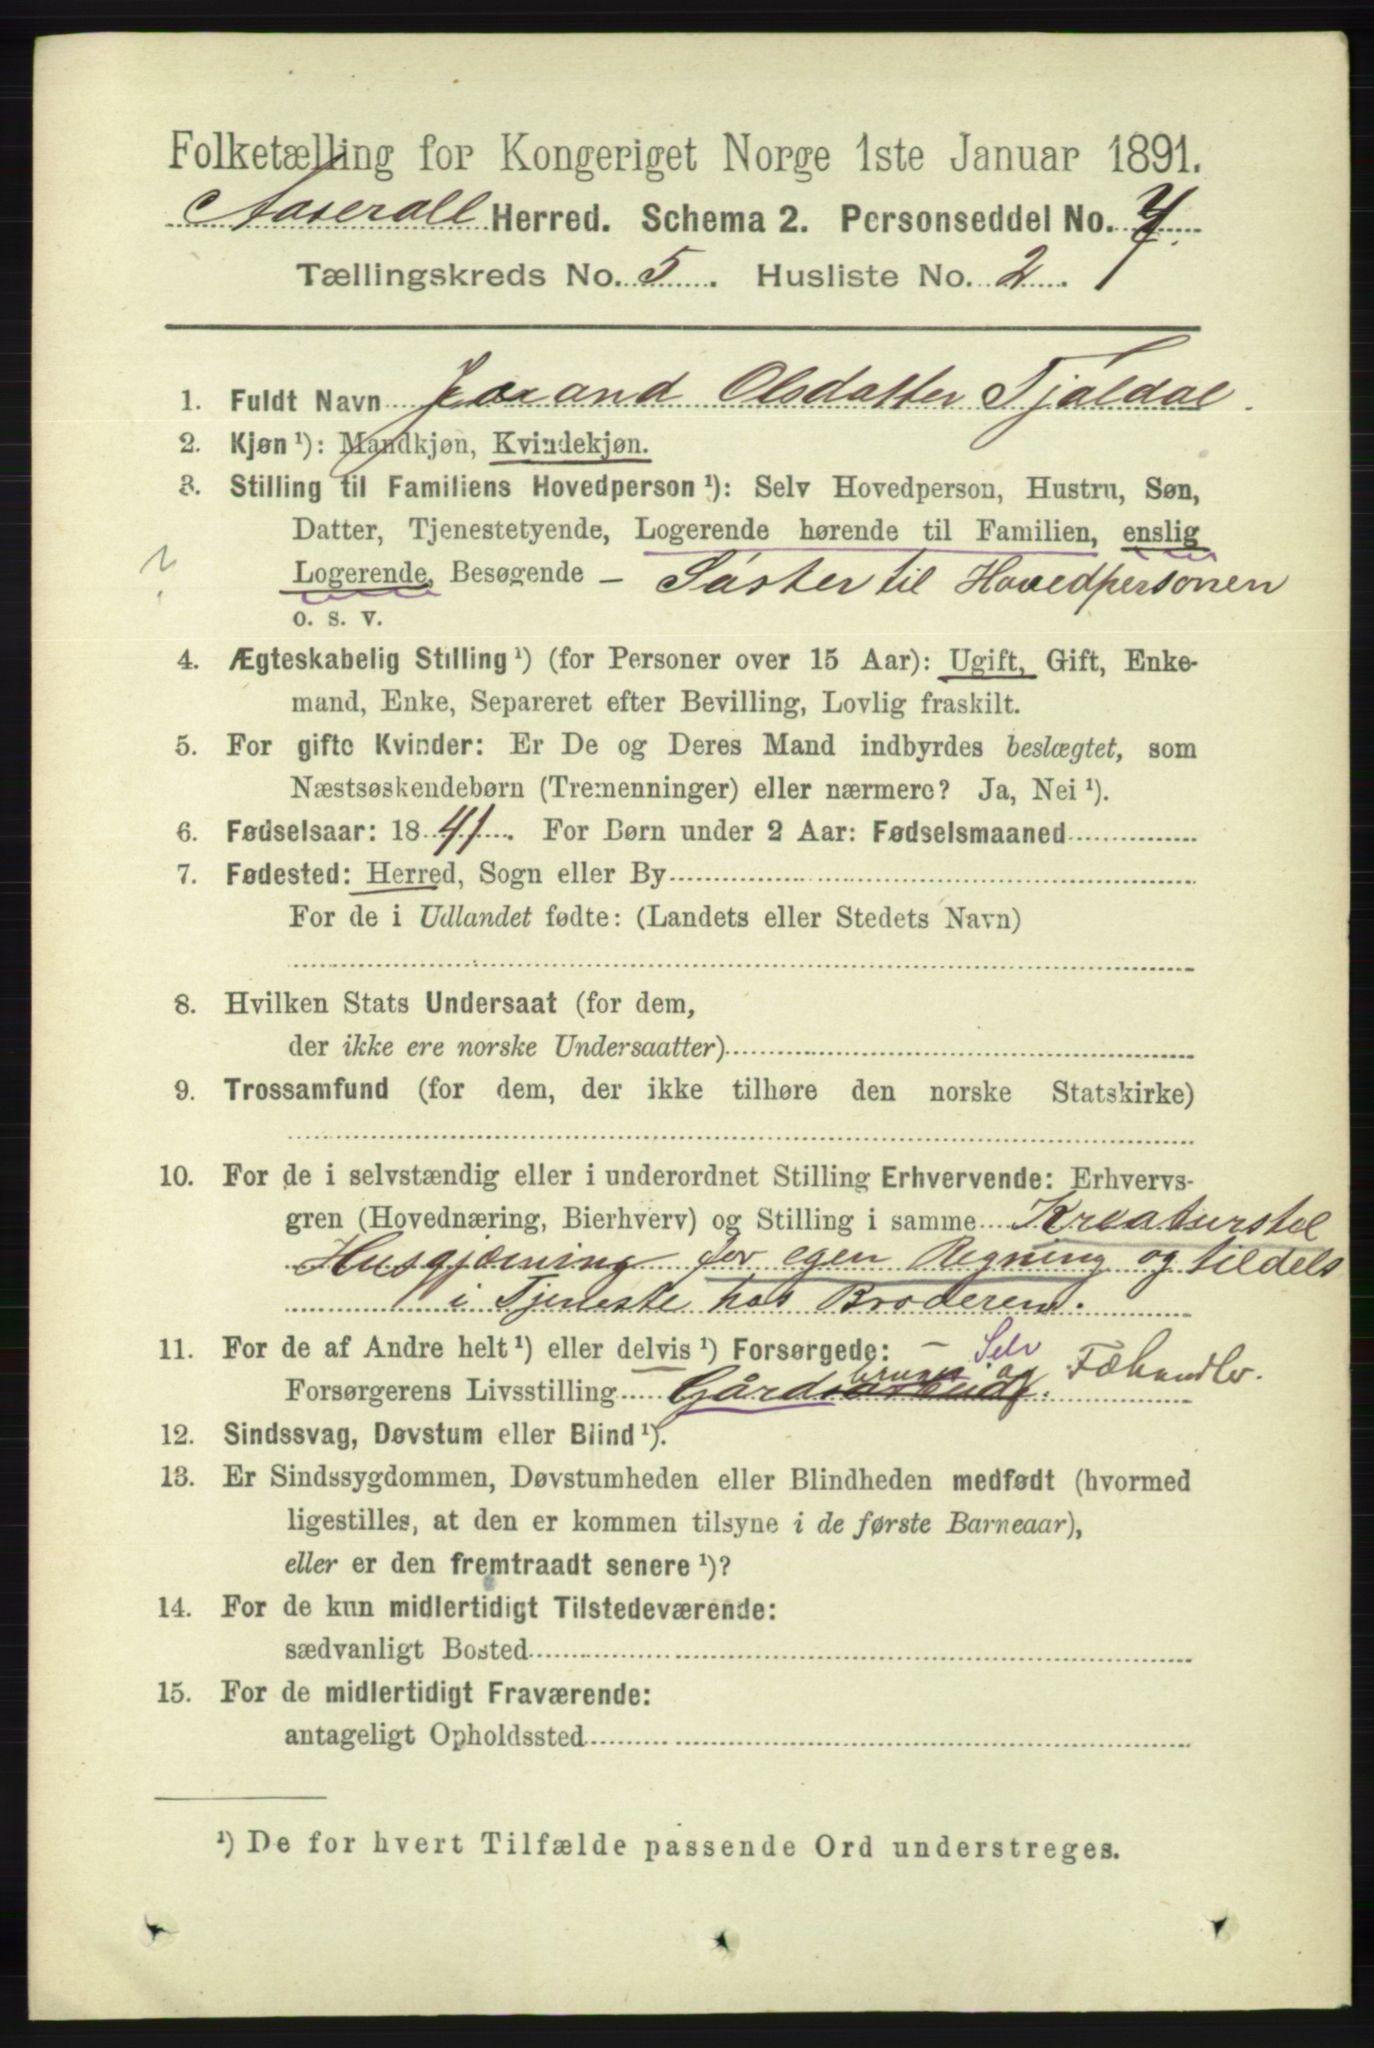 Folketælling for Kongeriget Norge 1ste Januar 1891.
Aaserall Herred. Schema 2. Personseddel No. 7.
Tællingskreds No. 5. Husliste No. 2.
1. Fuldt Navn Jorand Olsdatter Tjaldal.
2. Kjøn ¹): Mandkjøn, Kvindekjøn.
3. Stilling til Familiens Hovedperson ¹): Selv Hovedperson, Hustru, Søn,
Datter, Tjenestetyende, Logerende hørende til Familien, enslig
Logerende, Besøgende – Søster til Hovedpersonen
o. s. v.
4. Ægteskabelig Stilling ¹) (for Personer over 15 Aar): Ugift, Gift, Enke-
mand, Enke, Separeret efter Bevilling, Lovlig fraskilt.
5. For gifte Kvinder: Er De og Deres Mand indbyrdes beslægtet, som
Næstsøskendebørn (Tremenninger) eller nærmere? Ja, Nei ¹).
6. Fødselsaar: 1841. For Børn under 2 Aar: Fødselsmaaned
7. Fødested: Herred, Sogn eller By
For de i Udlandet fødte: (Landets eller Stedets Navn)
8. Hvilken Stats Undersaat (for dem,
der ikke ere norske Undersaatter)
9. Trossamfund (for dem, der ikke tilhøre den norske Statskirke)
10. For de i selvstændig eller i underordnet Stilling Erhvervende: Erhvervs-
gren (Hovednæring, Bierhverv) og Stilling i samme Kreaturstel
Husgjærning for egen Regning og tildels
i Tjeneste hos Broderen.
11. For de af Andre helt ¹) eller delvis ¹) Forsørgede: – Selv
Forsørgerens Livsstilling Gårdbruger og Fæhandler.
12. Sindssvag, Døvstum eller Blind ¹).
13. Er Sindssygdommen, Døvstumheden eller Blindheden medfødt (hvormed
ligestilles, at den er kommen tilsyne i de første Barneaar),
eller er den fremtraadt senere ¹)?
14. For de kun midlertidigt Tilstedeværende:
sædvanligt Bosted
15. For de midlertidigt Fraværende:
antageligt Opholdssted
¹) De for hvert Tilfælde passende Ord understreges.